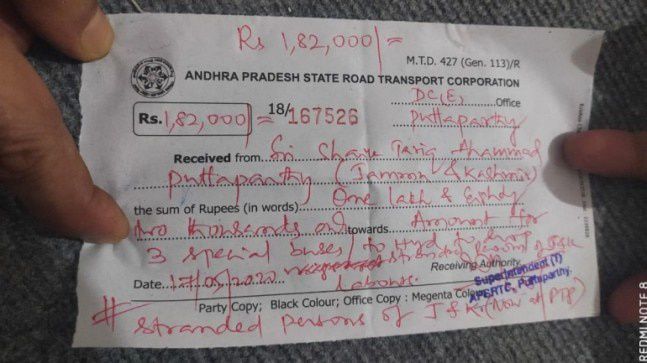 Rs 1,82,000/=
M.T.D. 427 (Gen. 113)/R
ANDHRA PRADESH STATE ROAD TRANSPORT CORPORATION
Rs. 1,82,000/= 18/167526 DC(E) Office
Puttaparthy
Received from Sri Tariq Ahammad
Puttaparthy (Jammu & Kashmir)
the sum of Rupees (in words) One lakh & Eighty
two thousands only towards Amount for
3 special buses to
Receiving Authority
Date 17/05/2020 labours.
Superintendent (T)
APSRTC, Puttaparthy.
Party Copy; Black Colour; Office Copy : Megenta
# stranded persons of J & K (Now at PTP)
REDMI NOTE 8